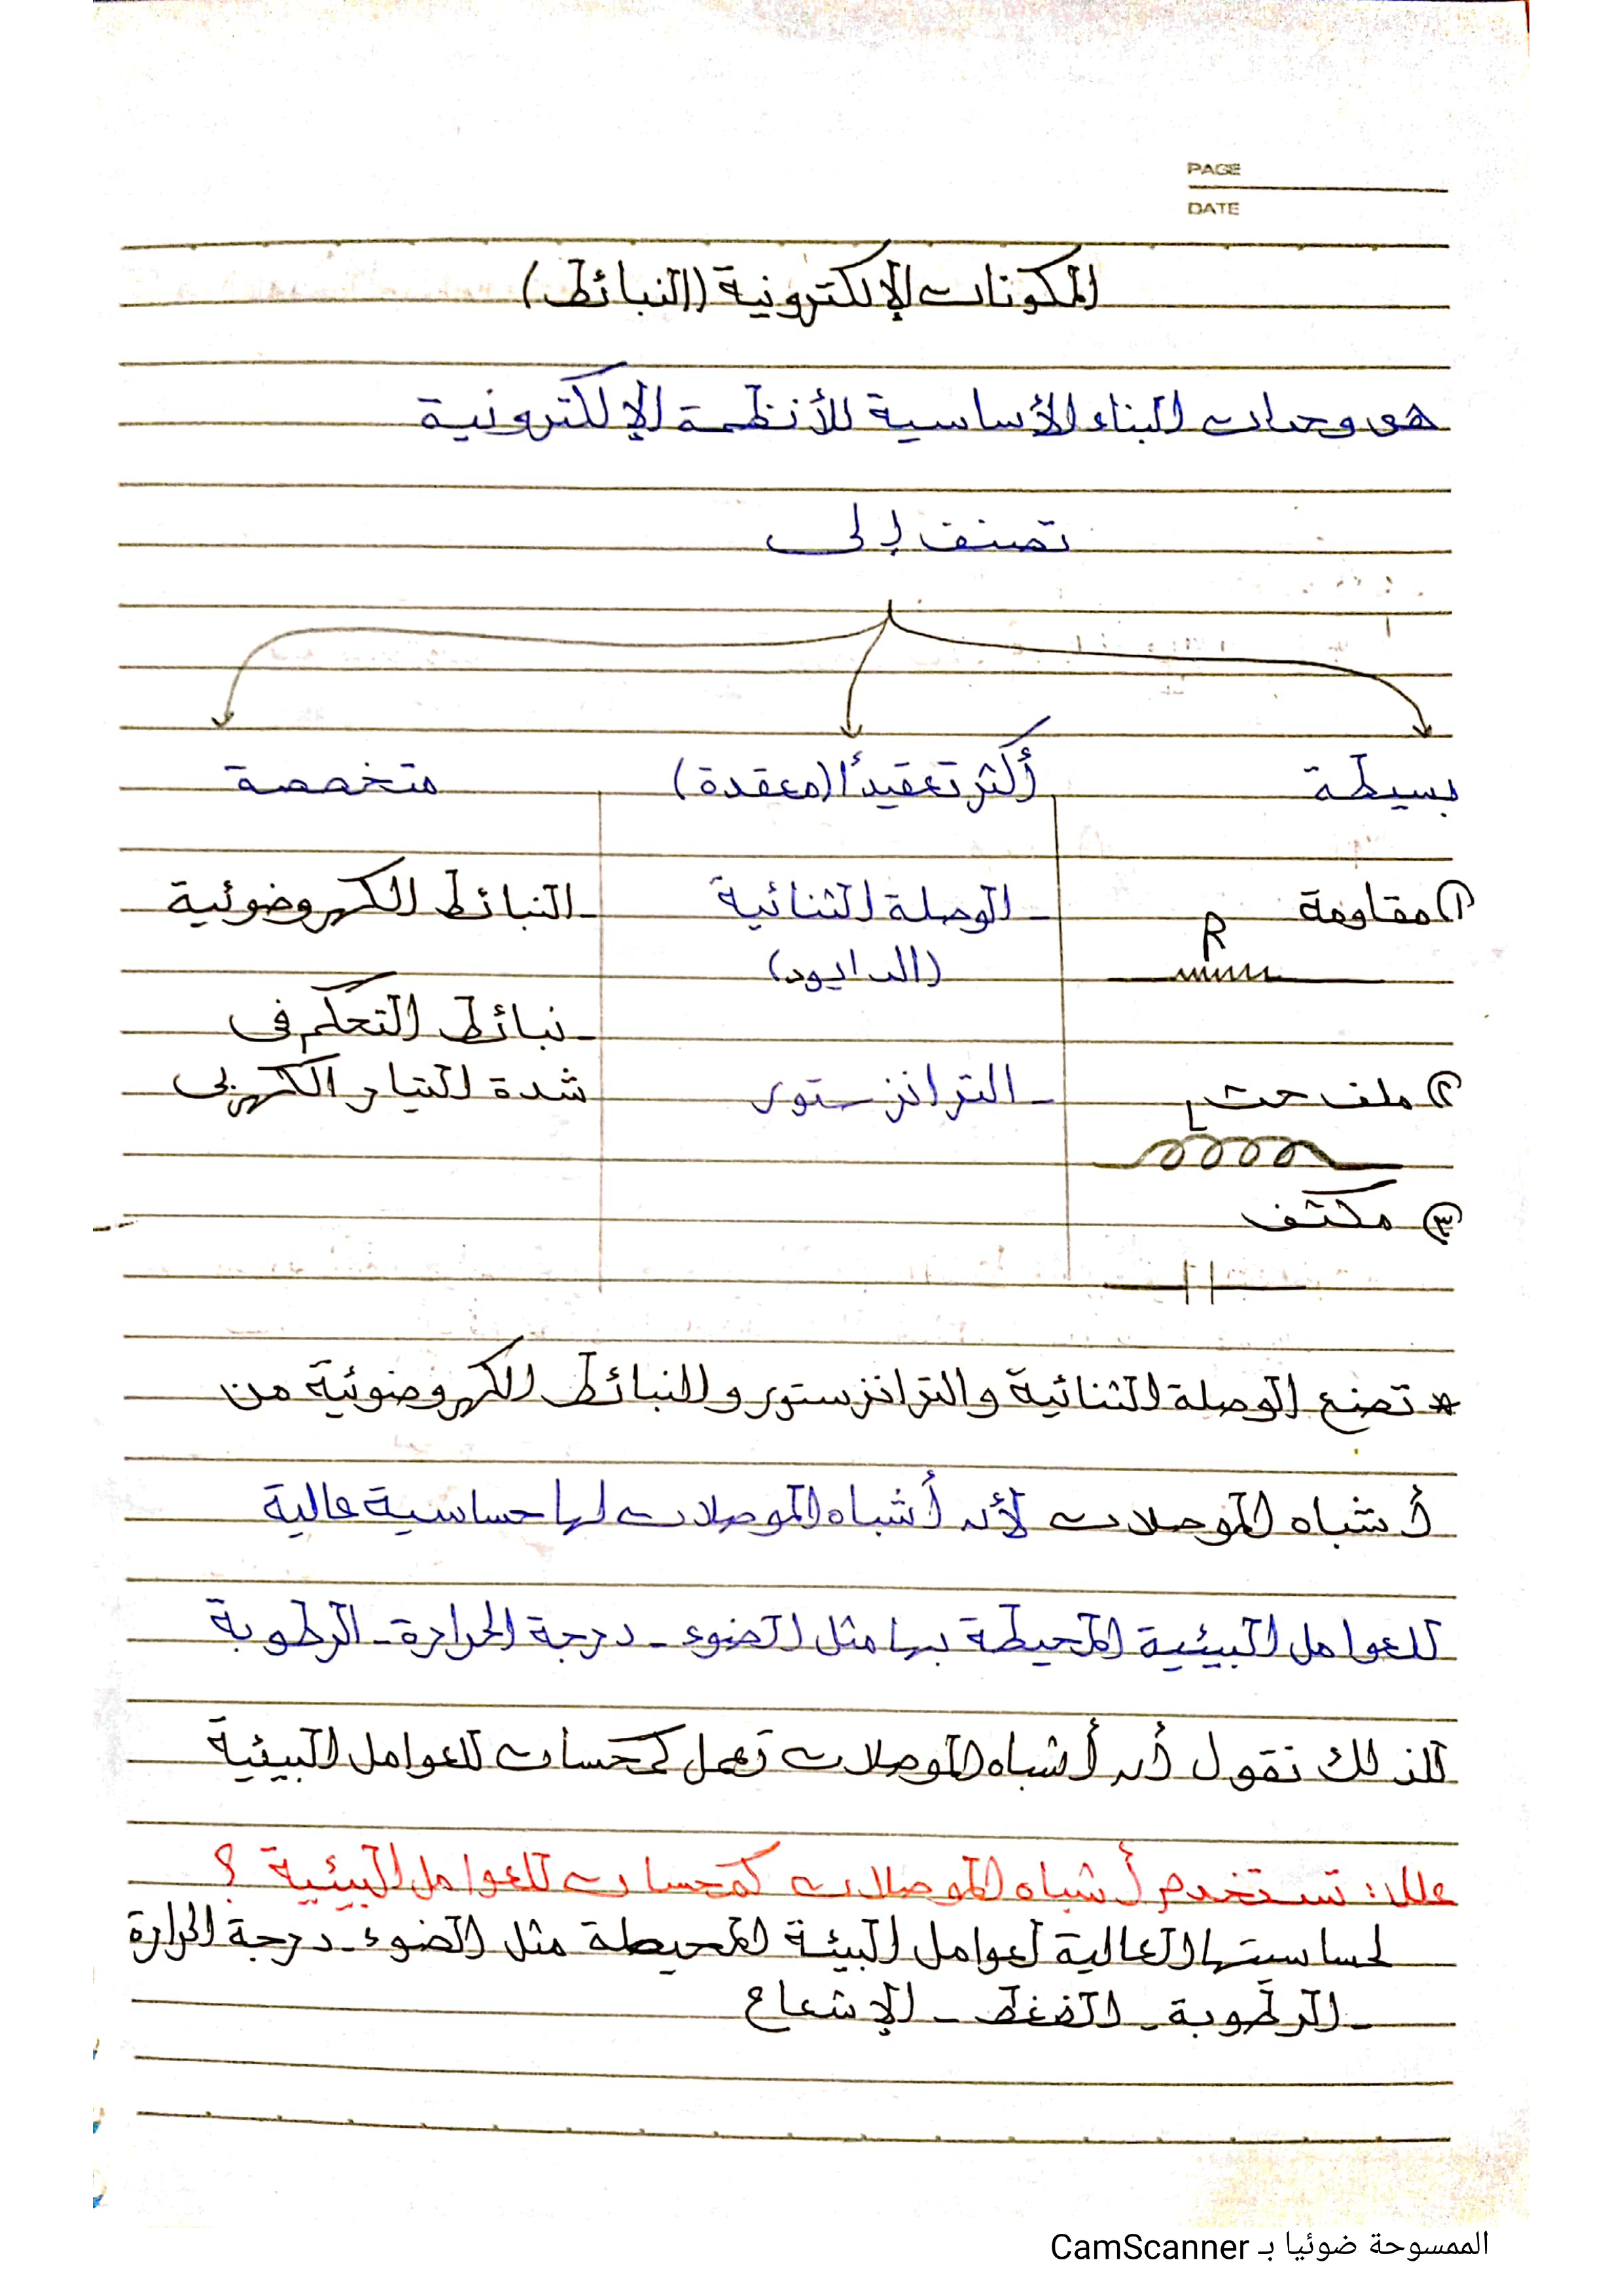 PAGE
DATE
المكونات الإلكترونية (النبائط)
هى وحدات البناء الأساسية للأنظمة الإلكترونية
تصنف إلى
بسيطة
أكثر تعقيدًا (معقدة)
متخصصة
① مقاومة
R
② ملف حث
L
③ مكثف
- الوصلة الثنائية
(الدايود)
- الترانزستور
- النبائط الكهروضوئية
- نبائط التحكم فى
شدة التيار الكهربى
* تصنع الوصلة الثنائية والترانزستور والنبائط الكهروضوئية من
أشباه الموصلات لأن أشباه الموصلات لها حساسية عالية
للعوامل البيئية المحيطة بها مثل الضوء - درجة الحرارة - الرطوبة
لذلك نقول أن أشباه الموصلات تعمل كمحسات للعوامل البيئية
علل: تستخدم أشباه الموصلات كمحسات للعوامل البيئية ؟
لحساسيتها العالية لعوامل البيئة المحيطة مثل الضوء - درجة الحرارة
- الرطوبة - الضغط - الإشعاع
الممسوحة ضوئيا بـ CamScanner